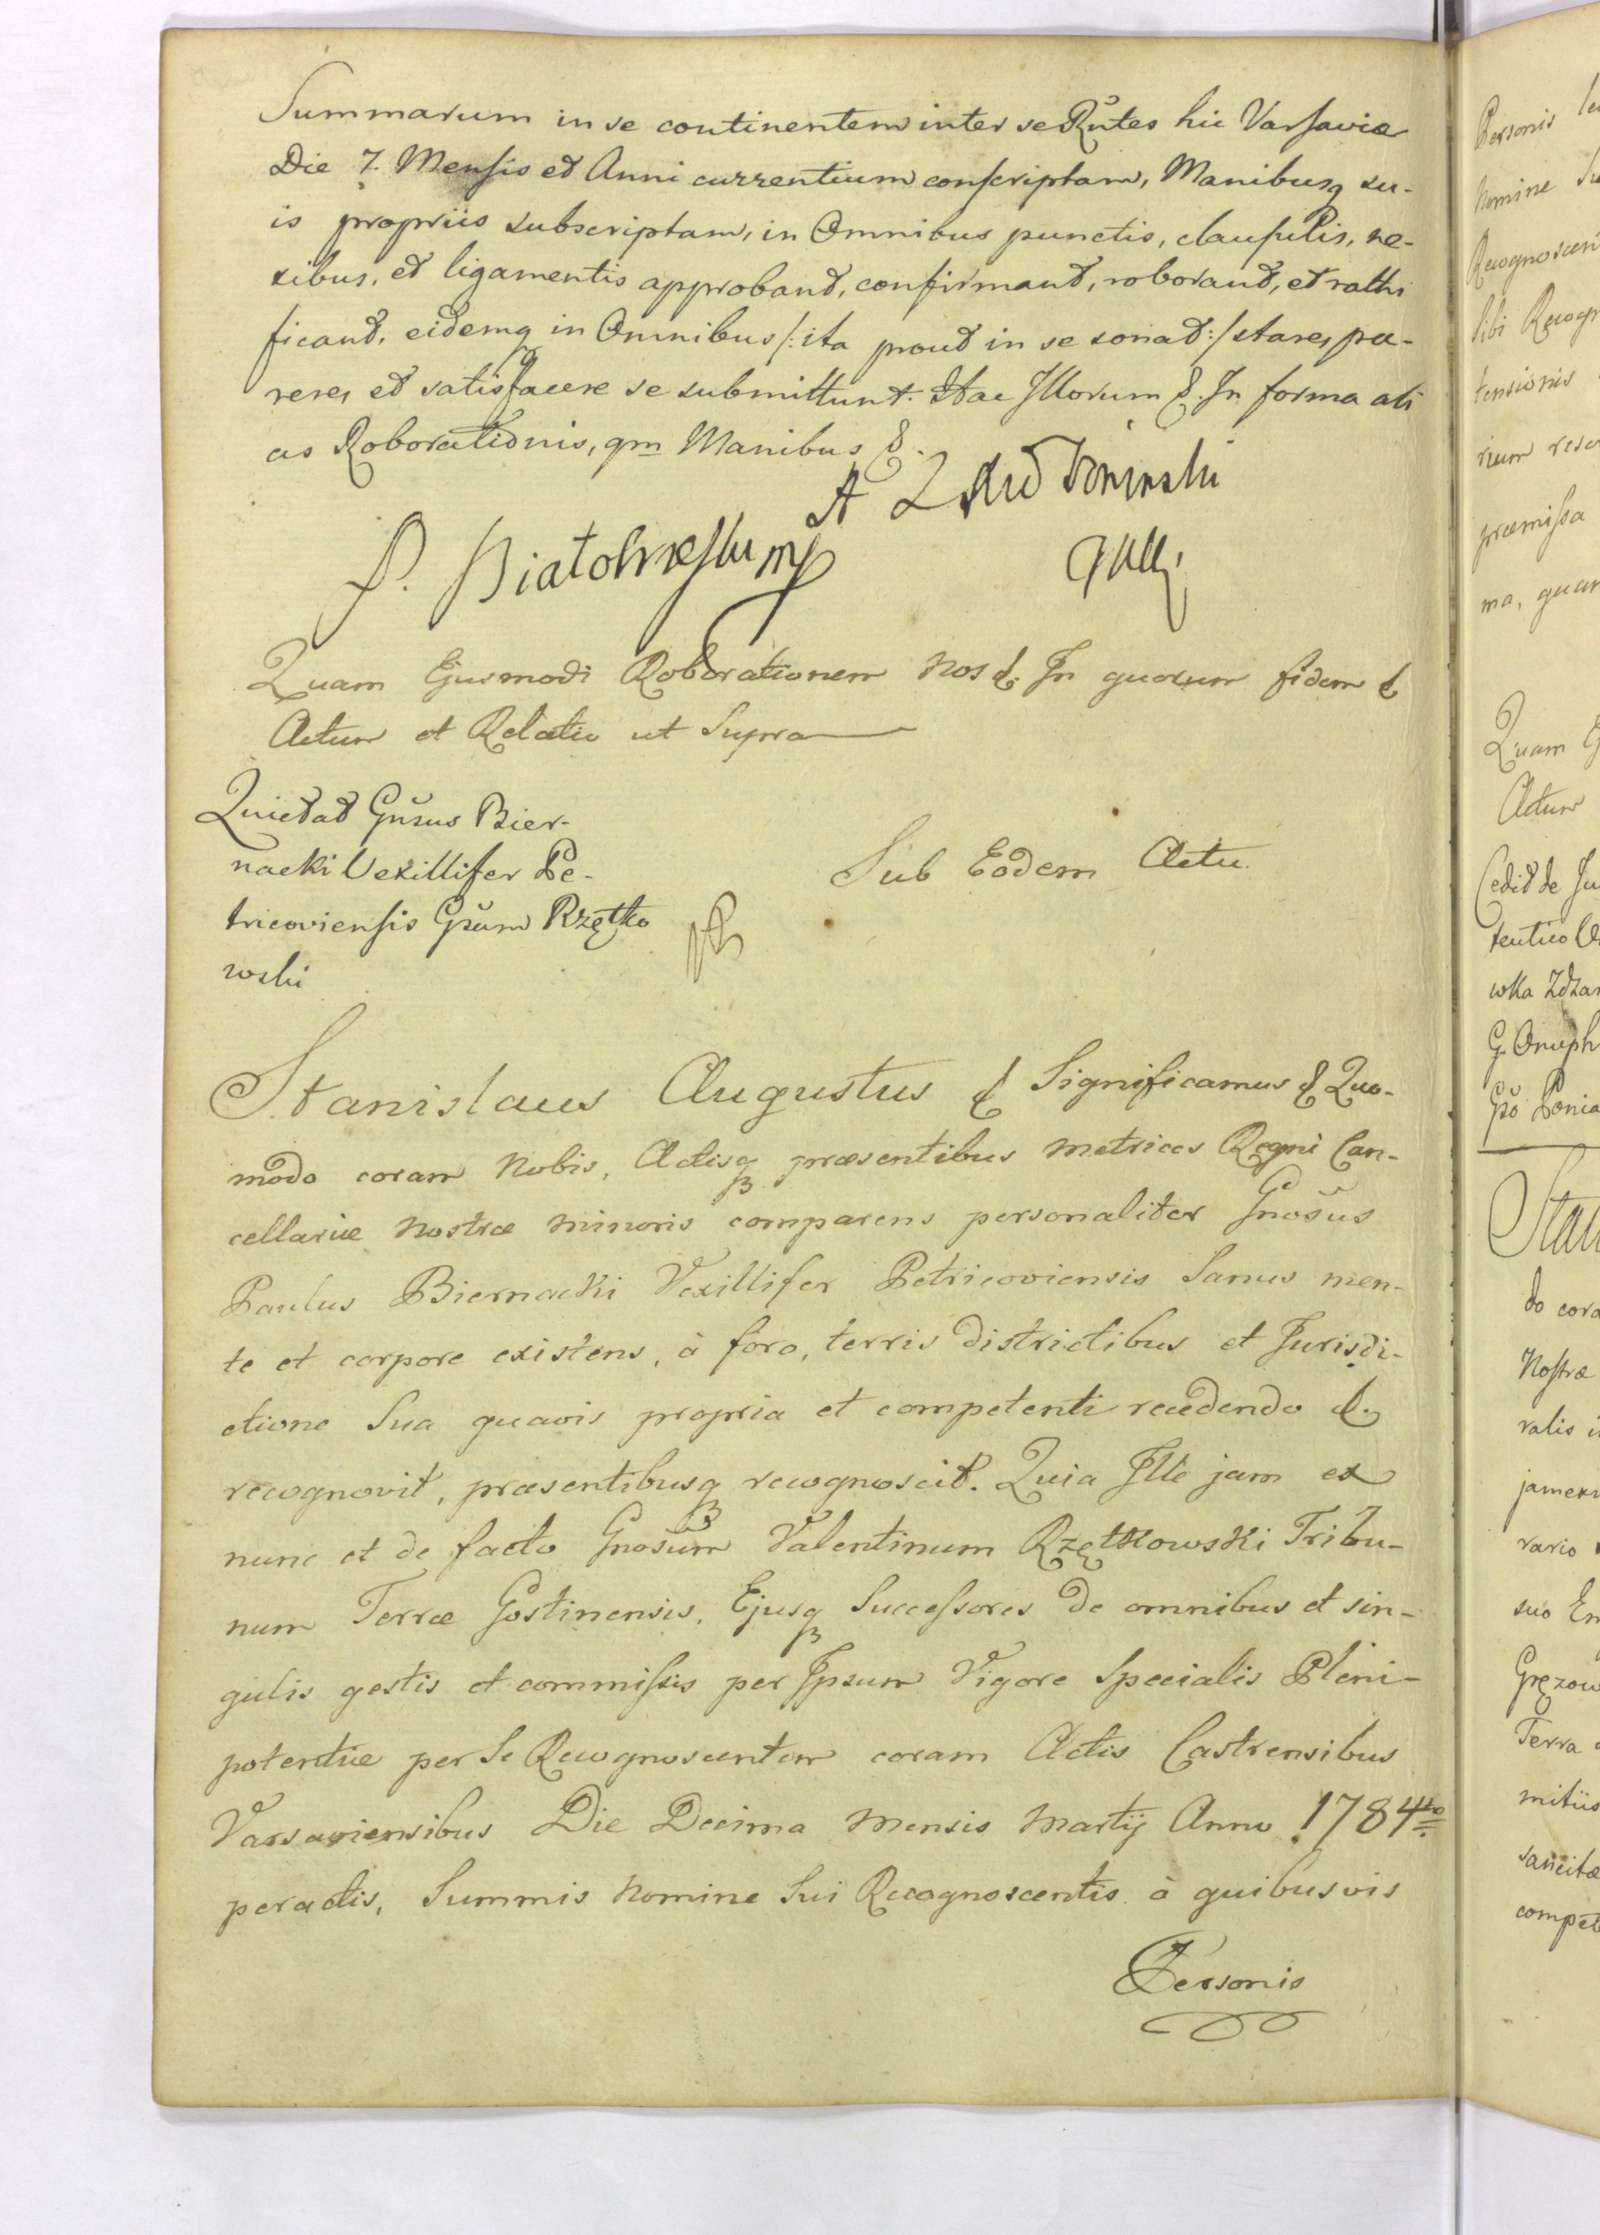 Summarum in se continentem inter se Rñtes hic Varsaviæ
Die 7. Mensis et Anni currentium conscriptam, Manibusq su-
is propriis subscriptam, in Omnibus punctis, clausulis, ne-
xibus, et ligamentis approband, confirmant, roborant, et rathi
ficant, eidemq in Omnibus /: ita prout in se sonat :/ stare, pa-
rere, et satisfacere se submittunt. Hac Illorum &. In forma ali
as Roborationis, qm Manibus &.
P.
Quam Ejusmodi Roborationem Nos &. In quorum fidem &
Actum et Relatio ut Supra
Quietat Gñsus Bier-
nacki Vexillifer Pe-
tricoviensis Gsum Rzętko
wski
Sub Eodem Actu.
Stanislaus Augustus & Significamus & Quo-
modo coram Nobis, Actisq præsentibus Metrices Regni Can-
cellariæ Nostræ Minoris comparens personaliter Gnosus
Paulus Biernacki Vexillifer Petricoviensis Sanus men-
te et corpore existens, à foro, terris districtibus et Jurisdi-
ctione Sua quavis propria et competenti recedendo &.
recognovit, præsentibusq recognoscit. Quia Ille jam ex
nunc et de facto Gnosum Valentinum Rzętkowski Tribu-
num Terræ Gostinensis, Ejusq Successores de omnibus et sin-
gulis gestis et commissis per Ipsum Vigore Specialis Pleni-
potentiæ per Se Recognoscentem coram Actis Castrensibus
Varsaviensibus Die Decima Mensis Martij Anno 1784to
peractis, Summis Nomine Sui Recognoscentis à quibusvis
Personis
Personis
Nomine
tensionis
præmissa
Quam
Actum
Cedit de
G. Onuph
do cora
Nostræ
ralis
vario
suo
Terra